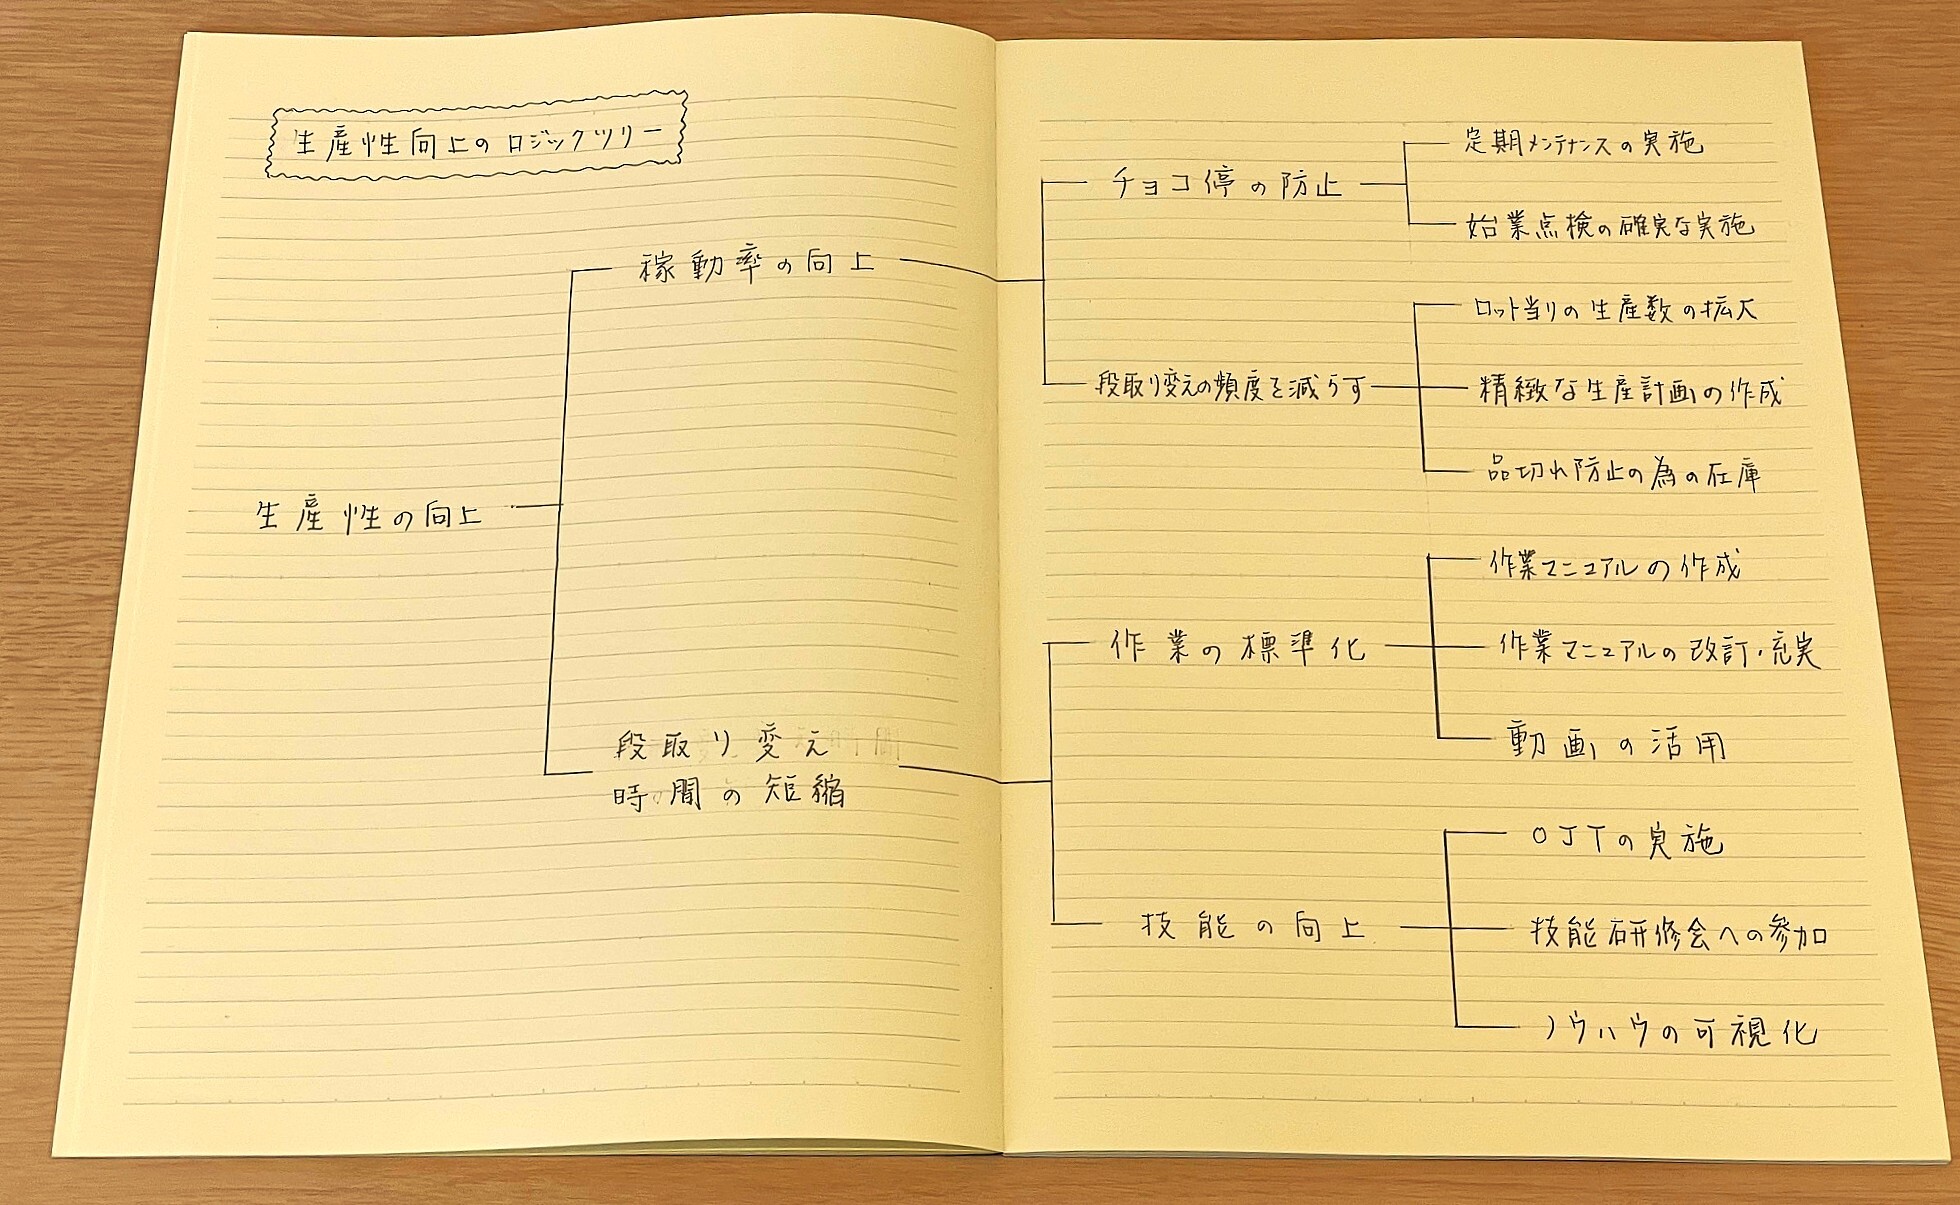 生産性向上のロジックツリー
生産性の向上
稼動率の向上
チョコ停の防止
定期メンテナンスの実施
始業点検の確実な実施
段取り変えの頻度を減らす
ロット当りの生産数の拡大
精緻な生産計画の作成
品切れ防止の為の在庫
段取り変え
時間の短縮
作業の標準化
作業マニュアルの作成
作業マニュアルの改訂・充実
動画の活用
技能の向上
OJTの実施
技能研修会への参加
ノウハウの可視化